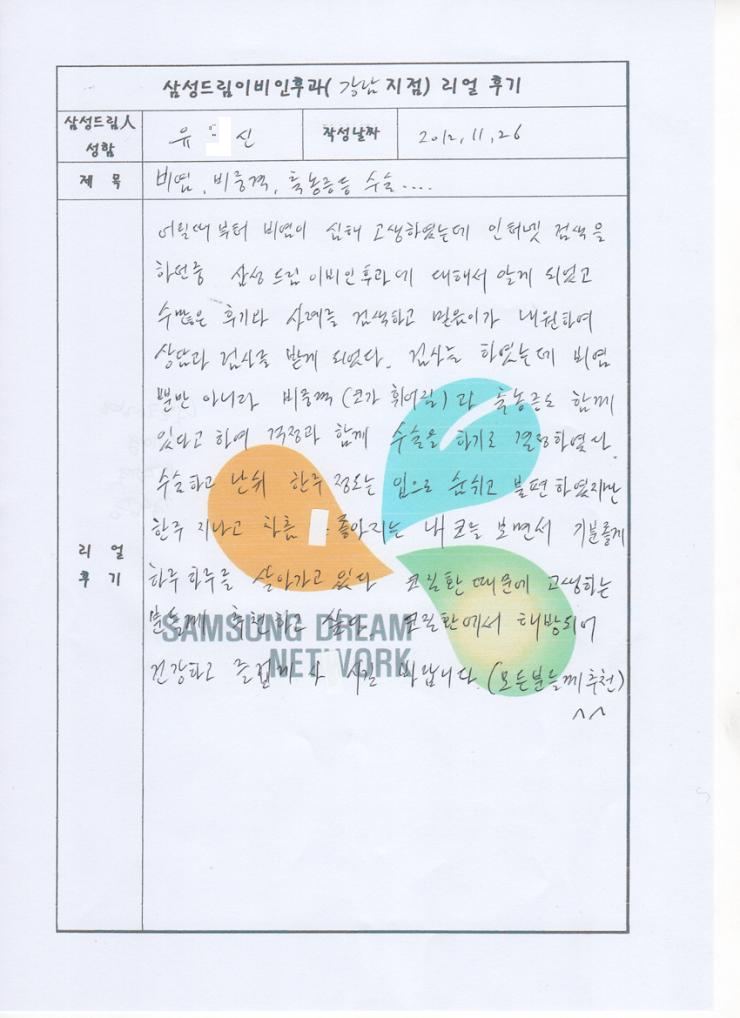 삼성드림이비인후과( 강남 지점) 리얼 후기
삼성드림人
성함
유 신
작성날짜
2012, 11, 26
제 목
비염, 비중격, 축농증등 수술....
리 얼
후 기
어릴때 부터 비염이 심해 고생하였는데 인터넷 검색을
하던중 삼성 드림 이비인후과에 대해서 알게 되었고
수많은 후기와 사례를 검색하고 믿음이가 내원하여
상담과 검사를 받게 되었다. 검사를 하였는데 비염
뿐만 아니라 비중격 (코가 휘어짐) 과 축농증도 함께
있다고 하여 걱정과 함께 수술을 하기로 결정하였다.
수술하고 난뒤 한주 정도는 입으로 숨쉬고 불편하였지만
한주 지나고 차츰 좋아지는 내 코를 보면서 기분좋게
하루 하루를 살아가고 있다 코질환 때문에 고생하는
분들께 추천하고 싶다. 코질환에서 해방되어
건강하고 즐겁게 사 시길 바랍니다. (모든분들께 추천)
^^
SAMSUNG DREAM
NETWORK